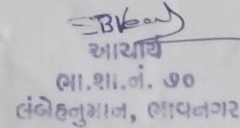 આચાર્ય
ભા.શા.નં. ૭૦
લંબેહનુમાન, ભાવનગર